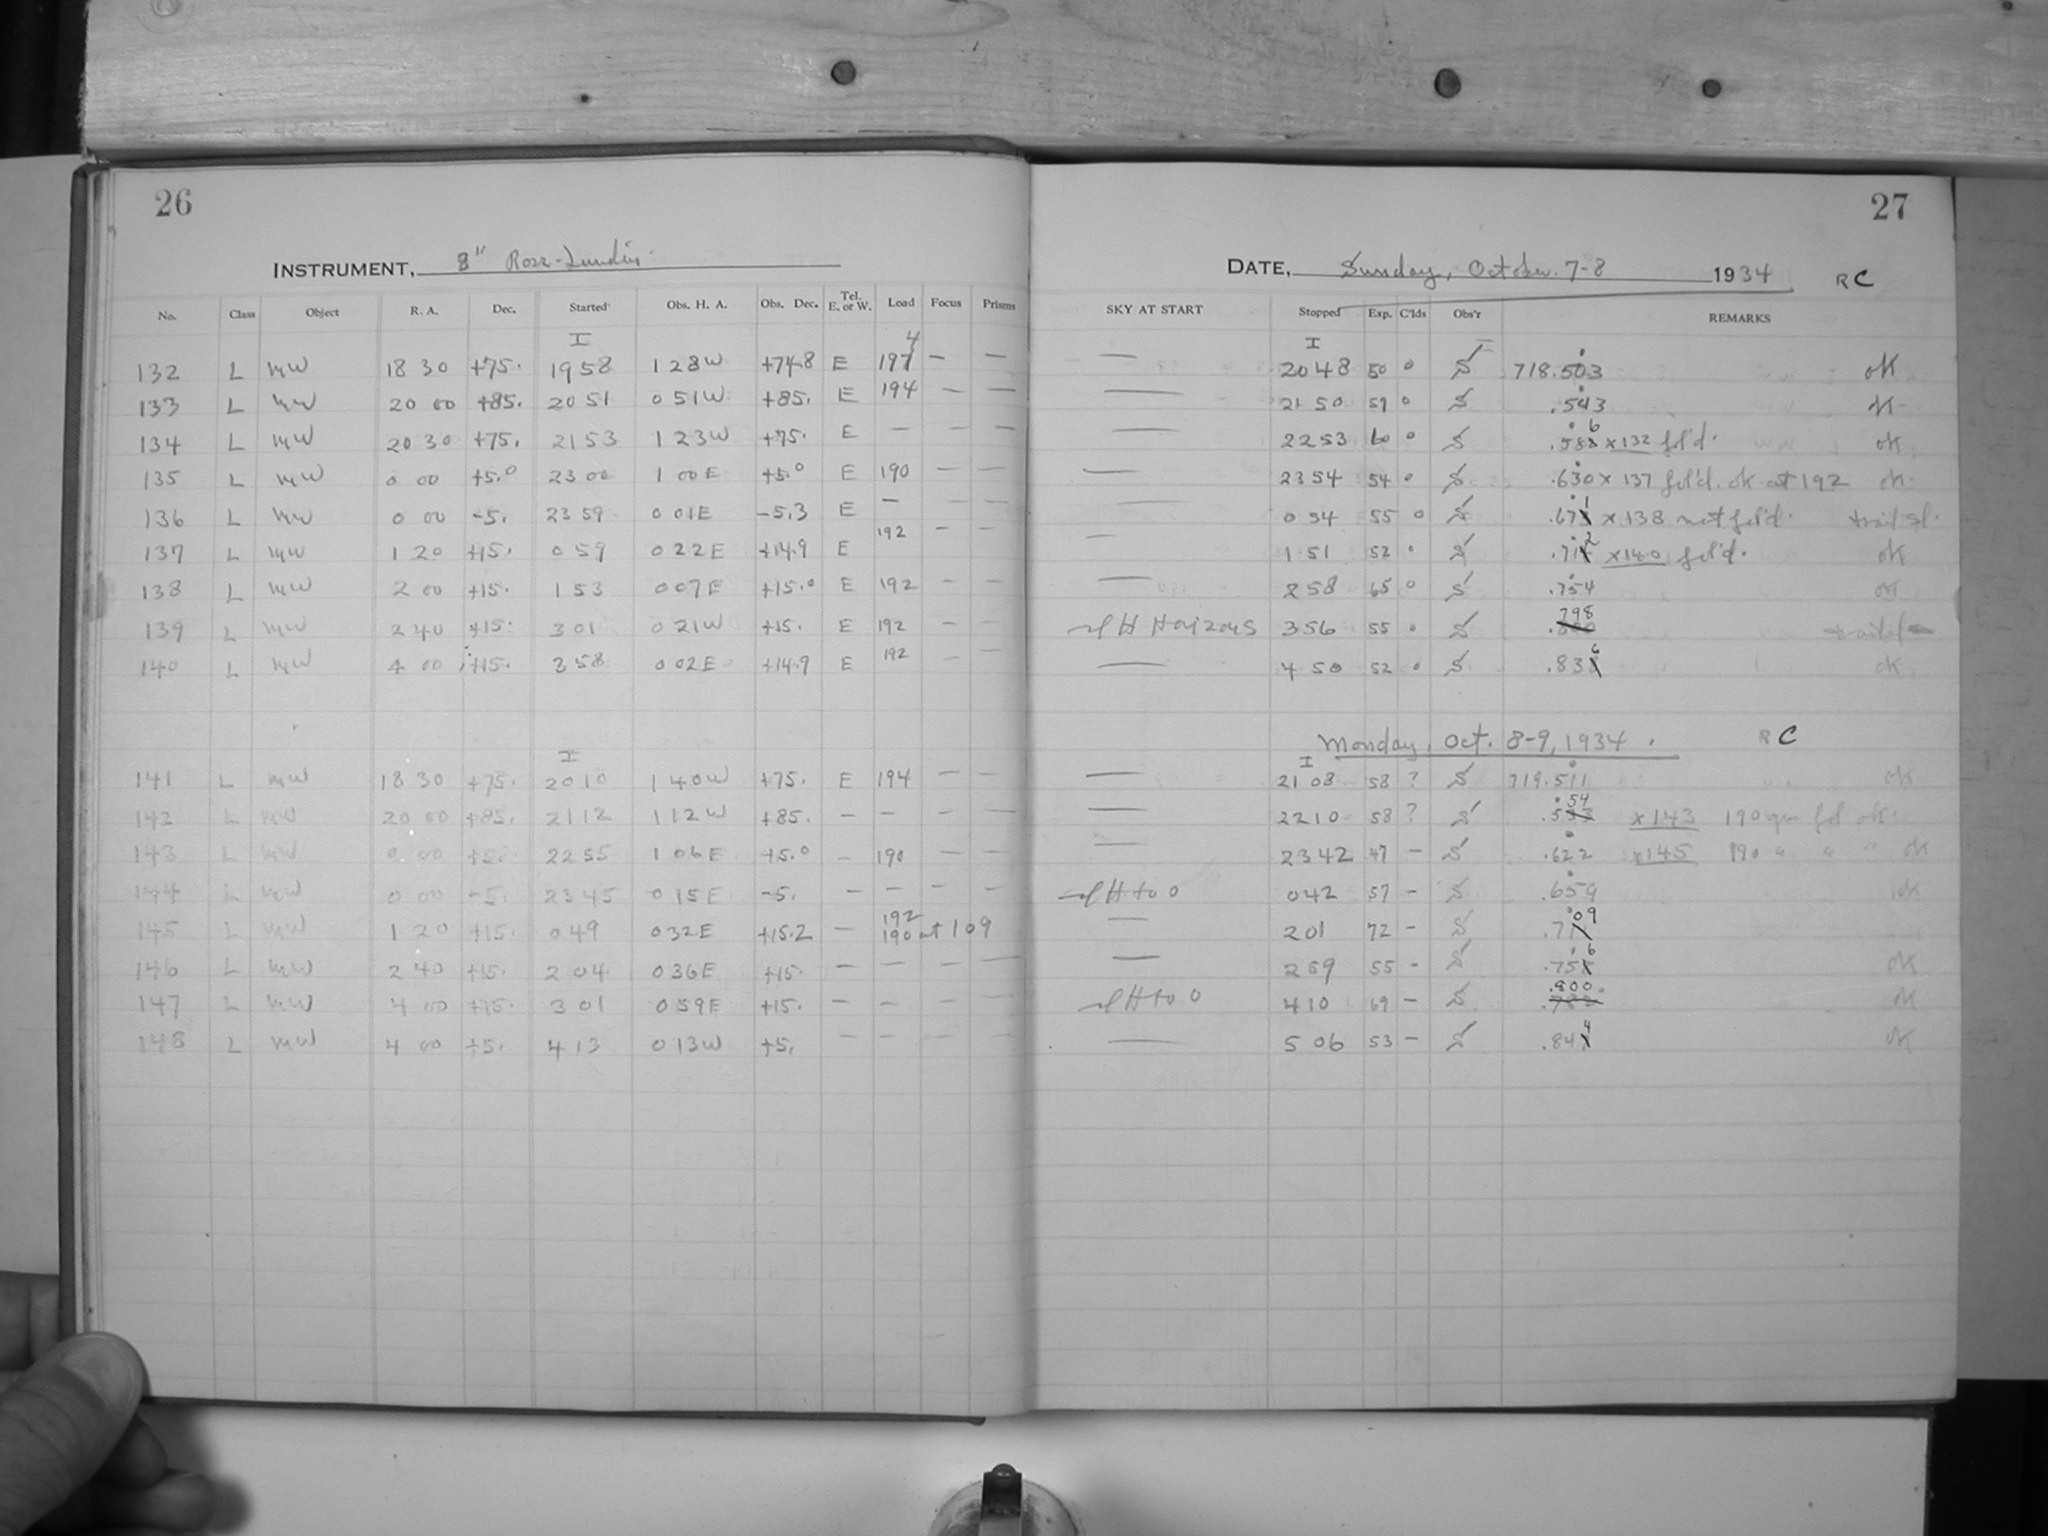 26
27
INSTRUMENT, 8" Ross-Lundin
DATE, Sunday, October 7-8 1934 RC
No. Class Object R. A. Dec. Started Obs. H. A. Obs. Dec. Tel. E. or W. Load Focus Prisms SKY AT START Stopped Exp. C'lds Obs'r REMARKS
I I
132 L MW 18 30 +75. 1958 1 28W +74.8 E 194 — — — 2048 50 0 S 718.503 ok
133 L MW 20 00 +85. 2051 0 51W +85. E 194 — — — 2150 59 0 S .543 ok
134 L MW 20 30 +75. 2153 1 23W +75. E — — — — 2253 60 0 S .586 x 132 fol'd. ok
135 L MW 0 00 +5.0 2300 1 00E +5.0 E 190 — — — 2354 54 0 S .630 x 137 fol'd. ok at 192 ok.
136 L MW 0 00 -5. 2359 0 01E -5.3 E — — — — 0 54 55 0 S .671 x 138 not fol'd.
137 L MW 1 20 +15. 0 59 0 22E +14.9 E 192 — — — 1 51 52 0 S .712 x140 fol'd. ok
138 L MW 2 00 +15. 1 53 0 07E +15.0 E 192 — — — 2 58 65 0 S .754 ok
139 L MW 2 40 +15. 3 01 0 21W +15. E 192 — — H Horizons 3 56 55 0 S .798
140 L MW 4 00 +15. 3 58 0 02E +14.9 E 192 — — — 4 50 52 0 S .836 ok
Monday, Oct. 8-9, 1934. RC
I I
141 L MW 18 30 +75. 2010 1 40W +75. E 194 — — — 2108 58 ? S 719.511 ok
142 L MW 20 00 +85. 2112 1 12W +85. — — — — — 2210 58 ? S .554 x143 190 gm fol ok.
143 L MW 0 00 +5. 2255 1 06E +5.0 — 190 — — — 2342 47 — S .622 x145 190 " " " ok
144 L MW 0 00 -5. 2345 0 15E -5. — — — — H to 0 0 42 57 — S .659 ok
145 L MW 1 20 +15. 0 49 0 32E +15.2 — 192 190 at 109 — 2 01 72 — S .709
146 L MW 2 40 +15. 2 04 0 36E +15. — — — — — 2 59 55 — S .756 ok
147 L MW 4 00 +15. 3 01 0 59E +15. — — — — H to 0 4 10 69 — S .800 ok
148 L MW 4 00 +5. 4 13 0 13W +5. — — — — — 5 06 53 — S .844 ok